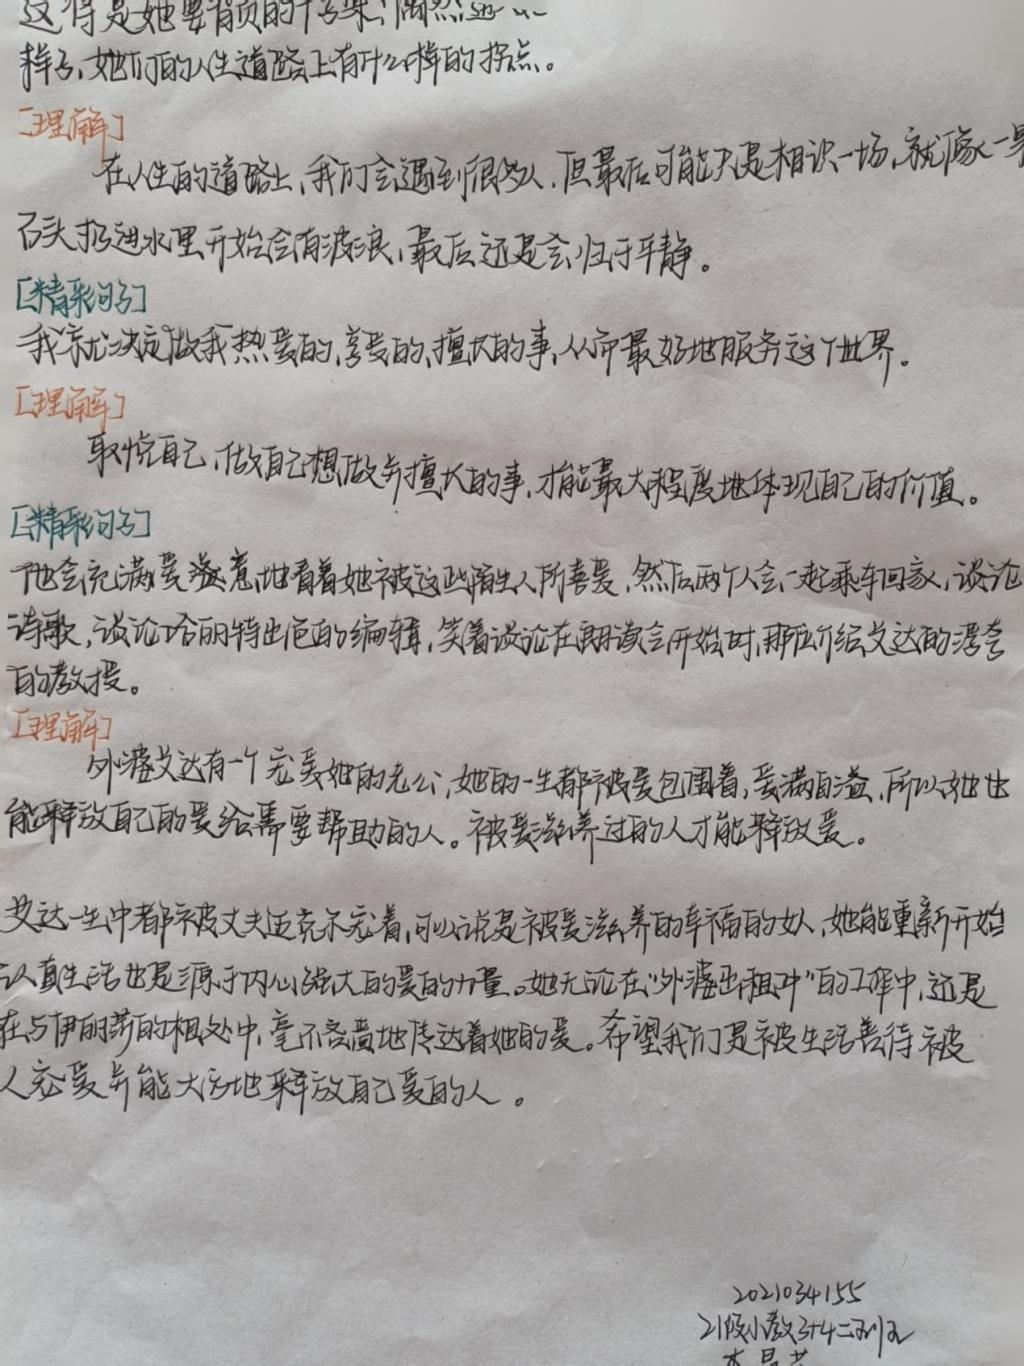 这得是她要背负的十字架;偶然遇
样子,她们的人生道路上有什么样的拐点。
[理解]
在人生的道路上,我们会遇到很多人,但最后可能只是相识一场,就像一果
石头扔进水里开始会有波浪,最后还是会归于平静。
[精彩句子]
我就决定做我热爱的,享受的,擅长的事,从而最好地服务这个世界。
[理解]
取悦自己,做自己想做并擅长的事,才能最大程度地体现自己的价值。
[精彩句子]
他会充满爱意地看着她被这些陌生人所喜爱,然后两个人会一起乘车回家,谈论
诗歌,谈论哈丽特出色的编辑,笑着谈论在朗读会开始时,那位介绍艾达的浮夸
的教授。
[理解]
外婆艾达有一个宠爱她的老公,她的一生都被爱包围着,爱满自溢,所以她也
能释放自己的爱给需要帮助的人。被爱滋养过的人才能释放爱。
艾达一生中都被丈夫迈克尔宠着,可以说是被爱滋养的幸福的女人,她能重新开始
认真生活也是源于内心强大的爱的力量。她无论在"外婆出租中"的工作中,还是
在与伊丽莎的相处中,毫不吝啬地传达着她的爱。希望我们是被生活善待被
人宠爱并能大方地释放自己爱的人。
2021034155
21级小教3+4二班